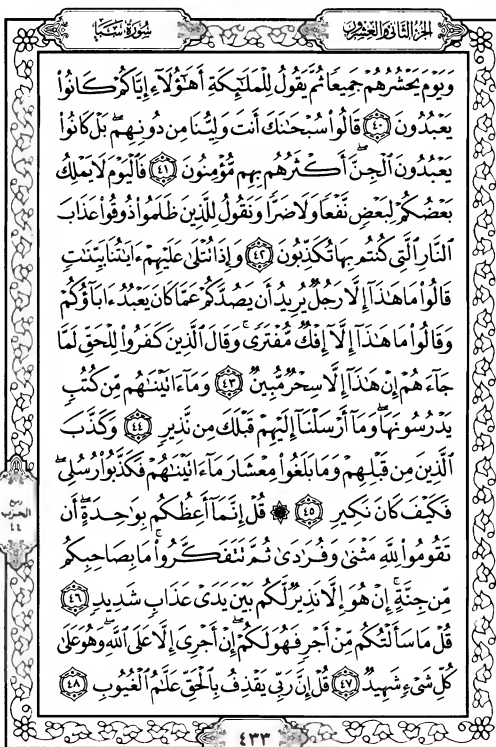 الجُزْءُ الثَّانِي وَالعِشْرُونَ
سُورَةُ سَبَإٍ
وَيَوْمَ يَحْشُرُهُمْ جَمِيعًا ثُمَّ يَقُولُ لِلْمَلَٰٓئِكَةِ أَهَٰٓؤُلَآءِ إِيَّاكُمْ كَانُوا۟
يَعْبُدُونَ ٤٠ قَالُوا۟ سُبْحَٰنَكَ أَنتَ وَلِيُّنَا مِن دُونِهِم ۖ بَلْ كَانُوا۟
يَعْبُدُونَ ٱلْجِنَّ ۖ أَكْثَرُهُم بِهِم مُّؤْمِنُونَ ٤١ فَٱلْيَوْمَ لَا يَمْلِكُ
بَعْضُكُمْ لِبَعْضٍ نَّفْعًا وَلَا ضَرًّا وَنَقُولُ لِلَّذِينَ ظَلَمُوا۟ ذُوقُوا۟ عَذَابَ
ٱلنَّارِ ٱلَّتِى كُنتُم بِهَا تُكَذِّبُونَ ٤٢ وَإِذَا تُتْلَىٰ عَلَيْهِمْ ءَايَٰتُنَا بَيِّنَٰتٍ
قَالُوا۟ مَا هَٰذَآ إِلَّا رَجُلٌ يُرِيدُ أَن يَصُدَّكُمْ عَمَّا كَانَ يَعْبُدُ ءَابَآؤُكُمْ
وَقَالُوا۟ مَا هَٰذَآ إِلَّآ إِفْكٌ مُّفْتَرًى ۚ وَقَالَ ٱلَّذِينَ كَفَرُوا۟ لِلْحَقِّ لَمَّا
جَآءَهُمْ إِنْ هَٰذَآ إِلَّا سِحْرٌ مُّبِينٌ ٤٣ وَمَآ ءَاتَيْنَٰهُم مِّن كُتُبٍ
يَدْرُسُونَهَا ۖ وَمَآ أَرْسَلْنَآ إِلَيْهِمْ قَبْلَكَ مِن نَّذِيرٍ ٤٤ وَكَذَّبَ
ٱلَّذِينَ مِن قَبْلِهِمْ وَمَا بَلَغُوا۟ مِعْشَارَ مَآ ءَاتَيْنَٰهُمْ فَكَذَّبُوا۟ رُسُلِى ۖ
فَكَيْفَ كَانَ نَكِيرِ ٤٥ ۞ قُلْ إِنَّمَآ أَعِظُكُم بِوَٰحِدَةٍ ۖ أَن
تَقُومُوا۟ لِلَّهِ مَثْنَىٰ وَفُرَٰدَىٰ ثُمَّ تَتَفَكَّرُوا۟ ۚ مَا بِصَاحِبِكُم
مِّن جِنَّةٍ ۚ إِنْ هُوَ إِلَّا نَذِيرٌ لَّكُم بَيْنَ يَدَىْ عَذَابٍ شَدِيدٍ ٤٦
قُلْ مَا سَأَلْتُكُم مِّنْ أَجْرٍ فَهُوَ لَكُمْ ۖ إِنْ أَجْرِىَ إِلَّا عَلَى ٱللَّهِ ۖ وَهُوَ عَلَىٰ
كُلِّ شَىْءٍ شَهِيدٌ ٤٧ قُلْ إِنَّ رَبِّى يَقْذِفُ بِٱلْحَقِّ عَلَّٰمُ ٱلْغُيُوبِ ٤٨
ربع
الحزب
٤٤
٤٣٣